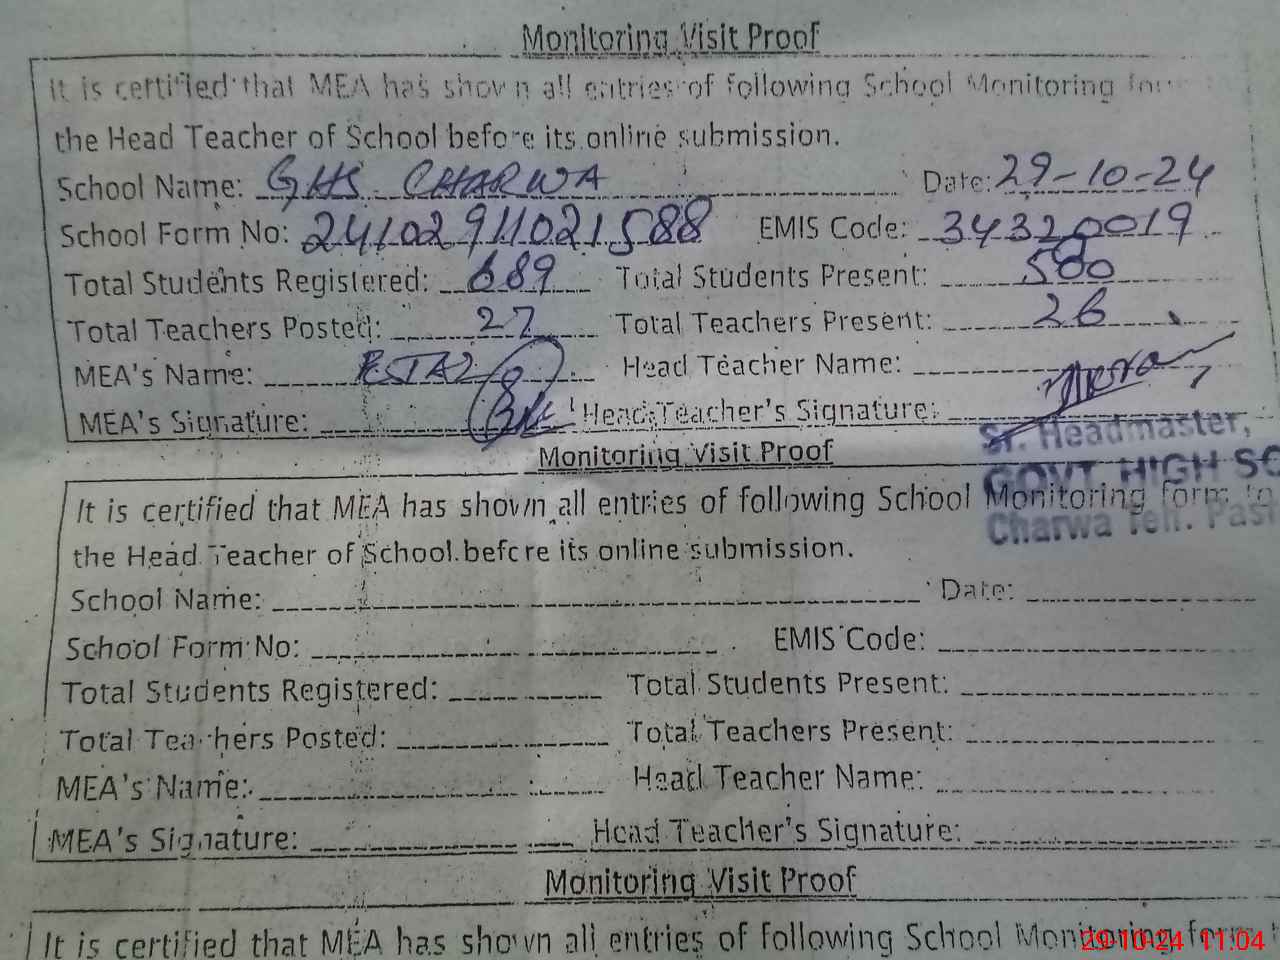 Monitoring Visit Proof
It is certified that MEA has shown all entries of following School Monitoring form
the Head Teacher of School before its online submission.
School Name: GHS CHARWA Date: 29-10-24
School Form No: 24102911021588 EMIS Code: 34320019
Total Students Registered: 689 Total Students Present: 580
Total Teachers Posted: 27 Total Teachers Present: 26
MEA's Name: Head Teacher Name:
MEA's Signature: Head Teacher's Signature:
Sr. Headmaster,
GOVT HIGH SC
Charwa Teh. Pas
Monitoring Visit Proof
It is certified that MEA has shown all entries of following School Monitoring form to
the Head Teacher of School before its online submission.
School Name: Date:
School Form No: EMIS Code:
Total Students Registered: Total Students Present:
Total Teachers Posted: Total Teachers Present:
MEA's Name: Head Teacher Name:
MEA's Signature: Head Teacher's Signature:
Monitoring Visit Proof
It is certified that MEA has shown all entries of following School Monitoring form t
29-10-24 11:04